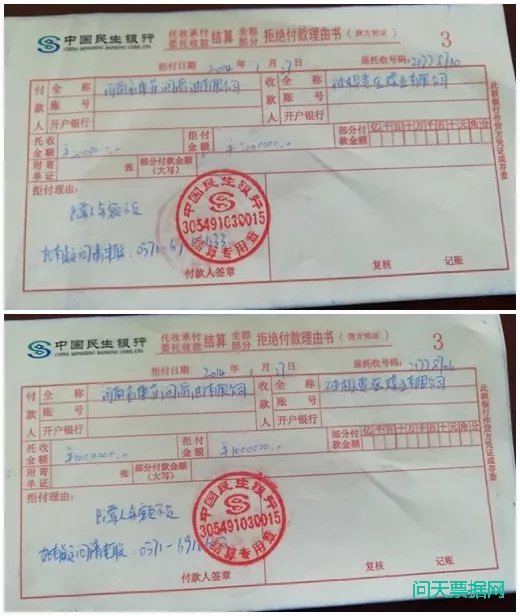 中国民生银行
CHINA MINSHENG BANKING CORP., LTD.
托收承付
委托收款
结算
全部
部分
拒绝付款理由书
(贷方凭证)
3
拒付日期 2014年 1月 27日
原托收号码:
付款人
全称
账号
开户银行
收款人
全称
有限公司
账号
开户银行
托收金额
拒付金额
部分付款金额
亿千百十万千百十元角分
附寄单证
张
部分付款金额
(大写)
拒付理由:
出票人余额不足
如有疑问请电联:0371-69
中国民生银行
305491030015
结算专用章
付款人签章
复核
记账
此联银行作贷方凭证或存查
中国民生银行
CHINA MINSHENG BANKING CORP., LTD.
托收承付
委托收款
结算
全部
部分
拒绝付款理由书
(贷方凭证)
3
拒付日期 2014年 1月 27日
原托收号码:
付款人
全称
账号
开户银行
收款人
全称
有限公司
账号
开户银行
托收金额
¥1000000.-
拒付金额
¥1000000.-
部分付款金额
亿千百十万千百十元角分
附寄单证
张
部分付款金额
(大写)
拒付理由:
出票人余额不足
如有疑问请电联:0371-691
中国民生银行
305491030015
结算专用章
付款人签章
复核
记账
此联银行作贷方凭证或存查
问天票据网